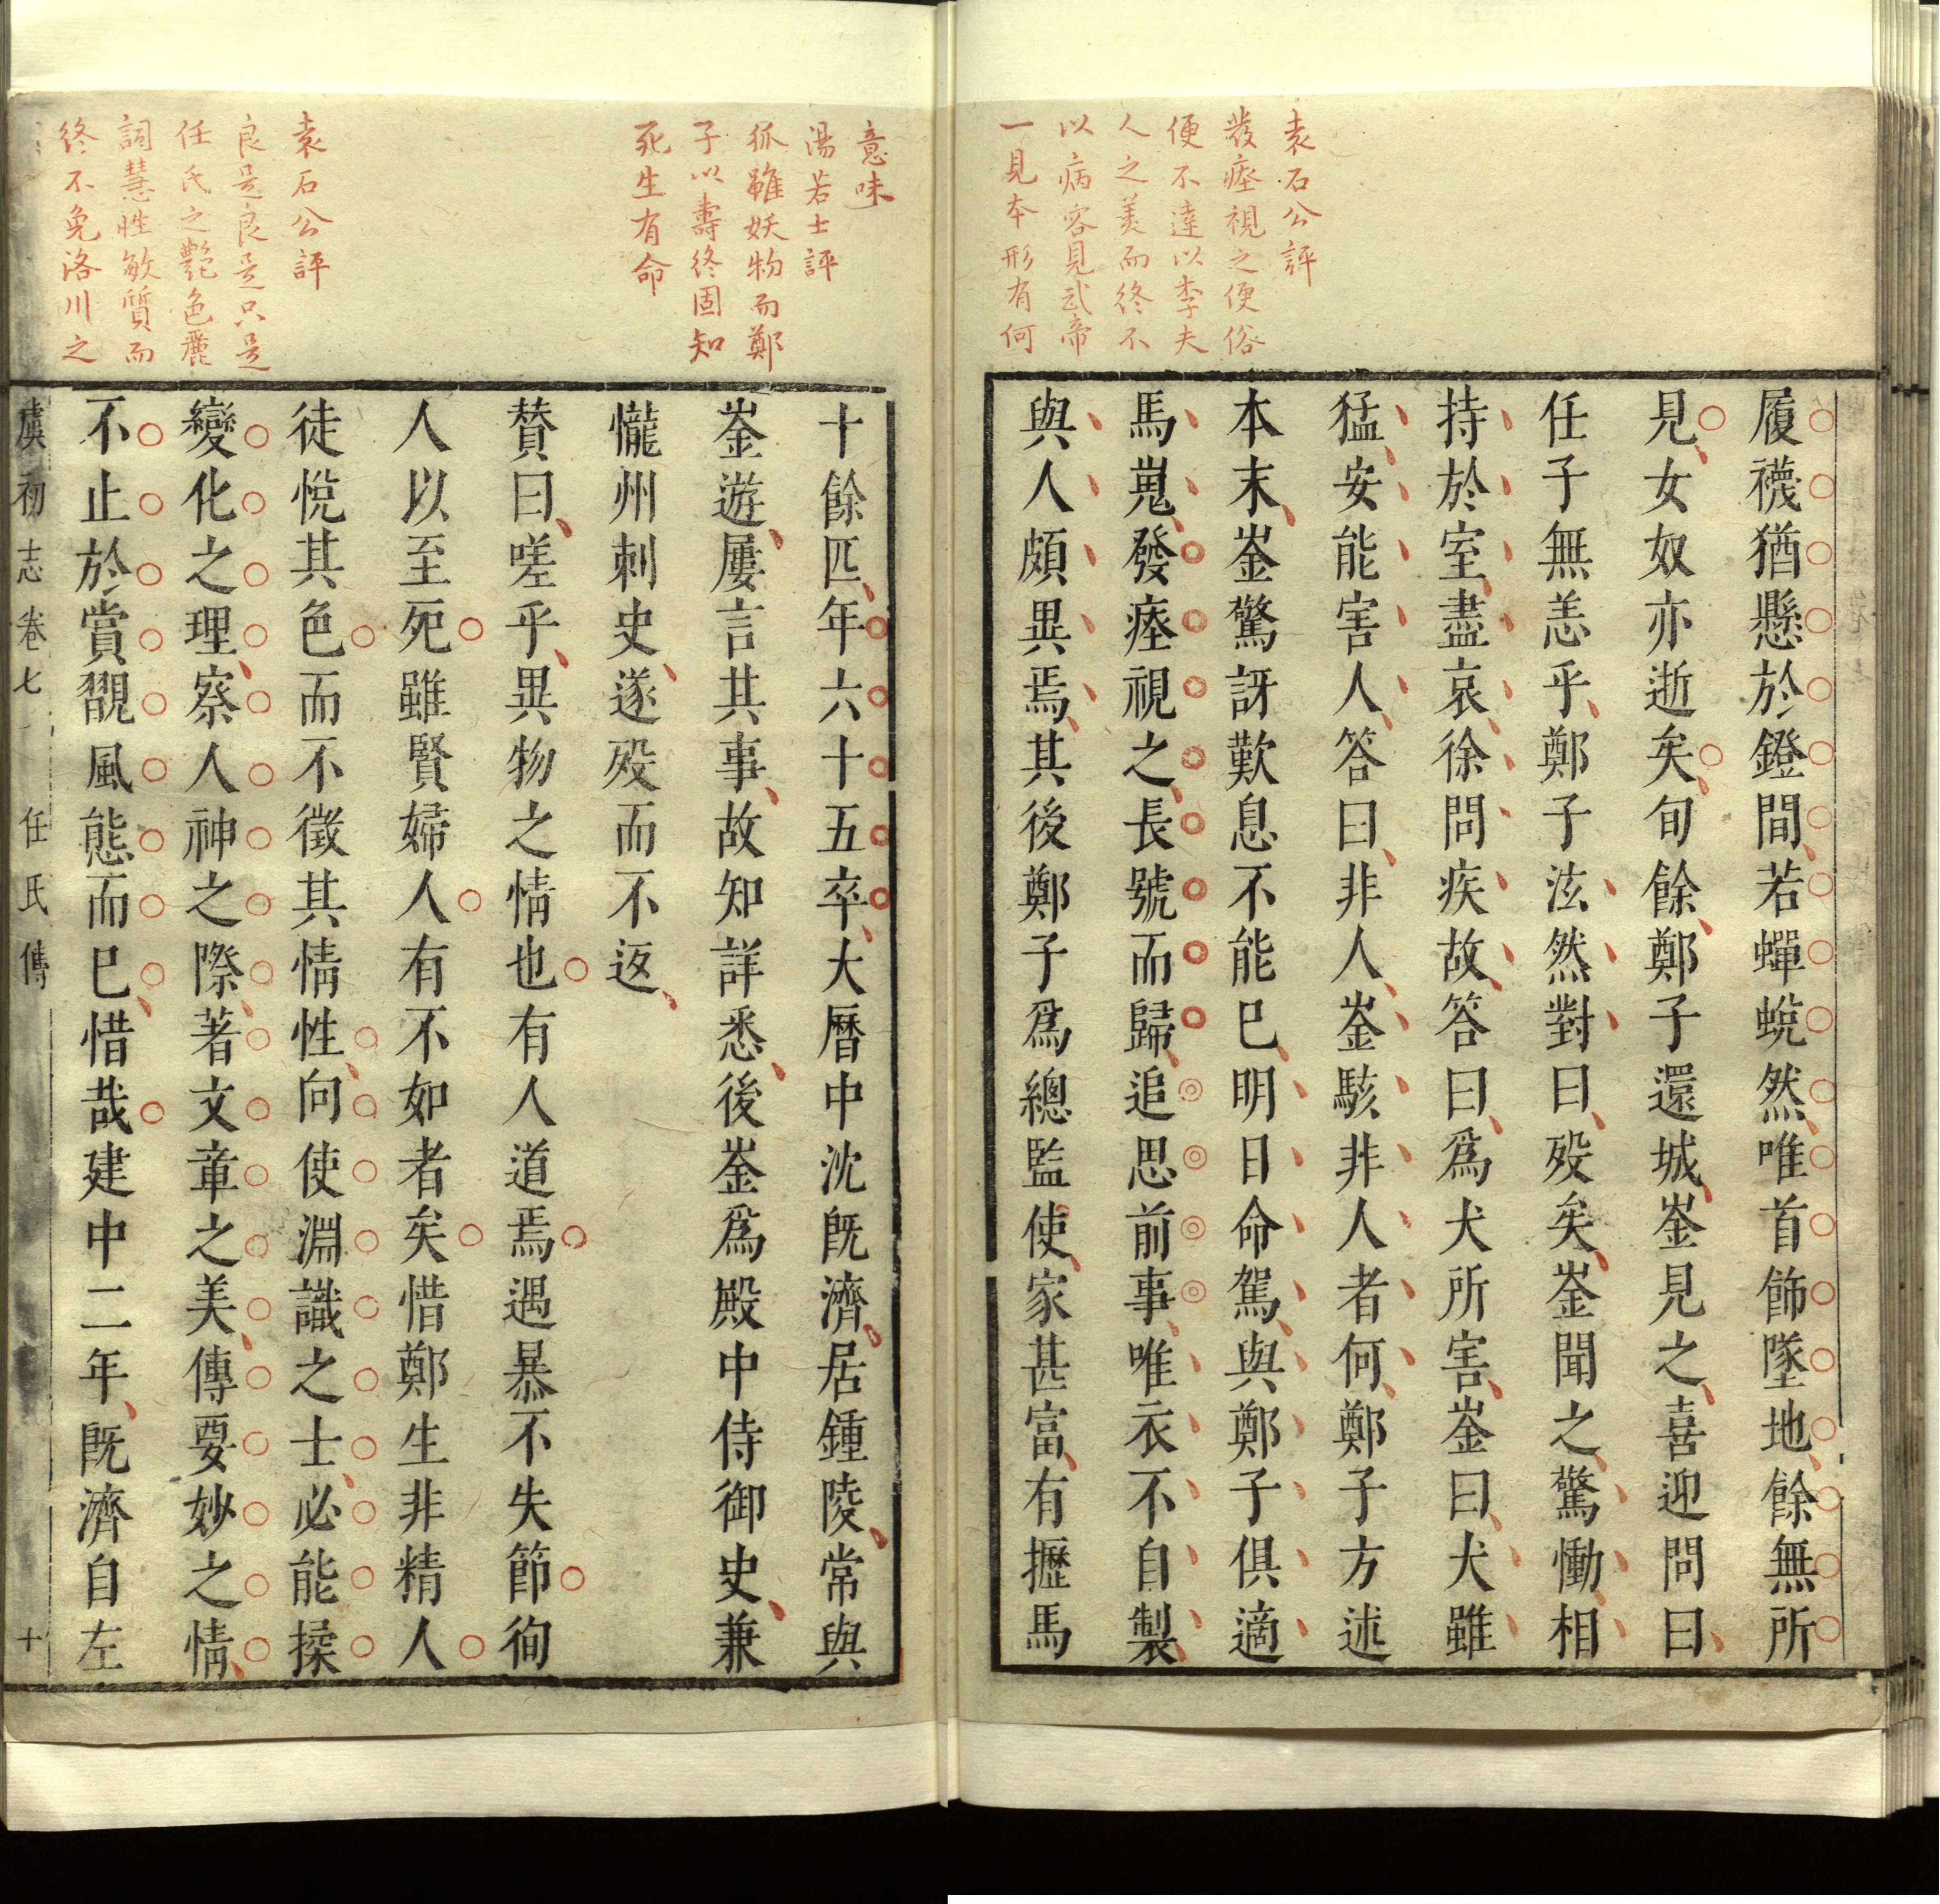 袁石公評
發瘞視之便俗
便不達以李夫
人之美而終不
以病容見武帝
一見本形有何
履襪猶懸於鐙間若蟬蛻然唯首飾墜地餘無所
見女奴亦逝矣旬餘鄭子還城崟見之喜迎問曰
任子無恙乎鄭子泫然對曰歿矣崟聞之驚慟相
持於室盡哀徐問疾故答曰爲犬所害崟曰犬雖
猛安能害人答曰非人崟駭非人者何鄭子方述
本末崟驚訝歎息不能已明日命駕與鄭子俱適
馬嵬發瘞視之長號而歸追思前事唯衣不自製
與人頗異焉其後鄭子爲總監使家甚富有攊馬
意味
湯若士評
狐雖妖物而鄭
子以壽終固知
死生有命
袁石公評
良是良是只是
任氏之艷色麗
詞慧性敏質而
終不免洛川之
十餘匹年六十五卒大曆中沈旣濟居鍾陵常與
崟遊屢言其事故知詳悉後崟爲殿中侍御史兼
隴州刺史遂歿而不返
贊曰嗟乎異物之情也有人道焉遇暴不失節徇
人以至死雖賢婦人有不如者矣惜鄭生非精人
徒悅其色而不徵其情性向使淵識之士必能揉
變化之理察人神之際著文章之美傳要妙之情
不止於賞翫風態而已惜哉建中二年旣濟自左
虞初志卷七 任氏傳 十